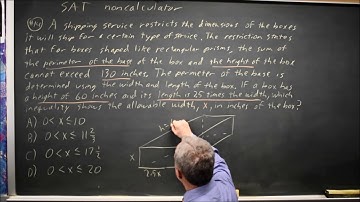 SAT noncalculator
#14) A shipping service restricts the dimensions of the boxes
it will ship for a certain type of service. The restriction states
that for boxes shaped like rectangular prisms, the sum of
the perimeter of the base of the box and the height of the box
cannot exceed 130 inches. The perimeter of the base is
determined using the width and length of the box. If a box has
a height of 60 inches and its length is 2.5 times the width, which
inequality shows the allowable width, x, in inches of the box?
A) 0 < x ≤ 10
B) 0 < x ≤ 11 2/3
C) 0 < x ≤ 17 1/2
D) 0 < x ≤ 20
x
2.5x